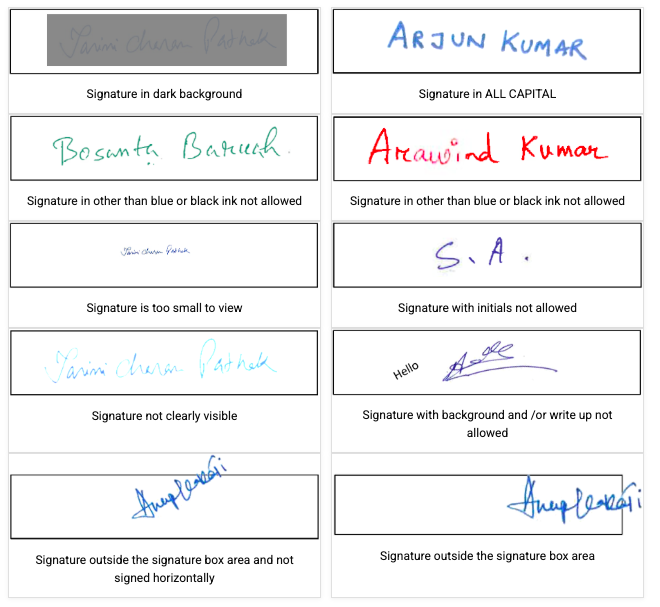 Tarini charan Pathak
Signature in dark background
ARJUN KUMAR
Signature in ALL CAPITAL
Bosanta Baruah
Signature in other than blue or black ink not allowed
Arawind Kumar
Signature in other than blue or black ink not allowed
Tarini charan Pathak
Signature is too small to view
S. A.
Signature with initials not allowed
Tarini charan Pathak
Signature not clearly visible
Hello
Signature with background and /or write up not
allowed
Signature outside the signature box area and not
signed horizontally
Signature outside the signature box area